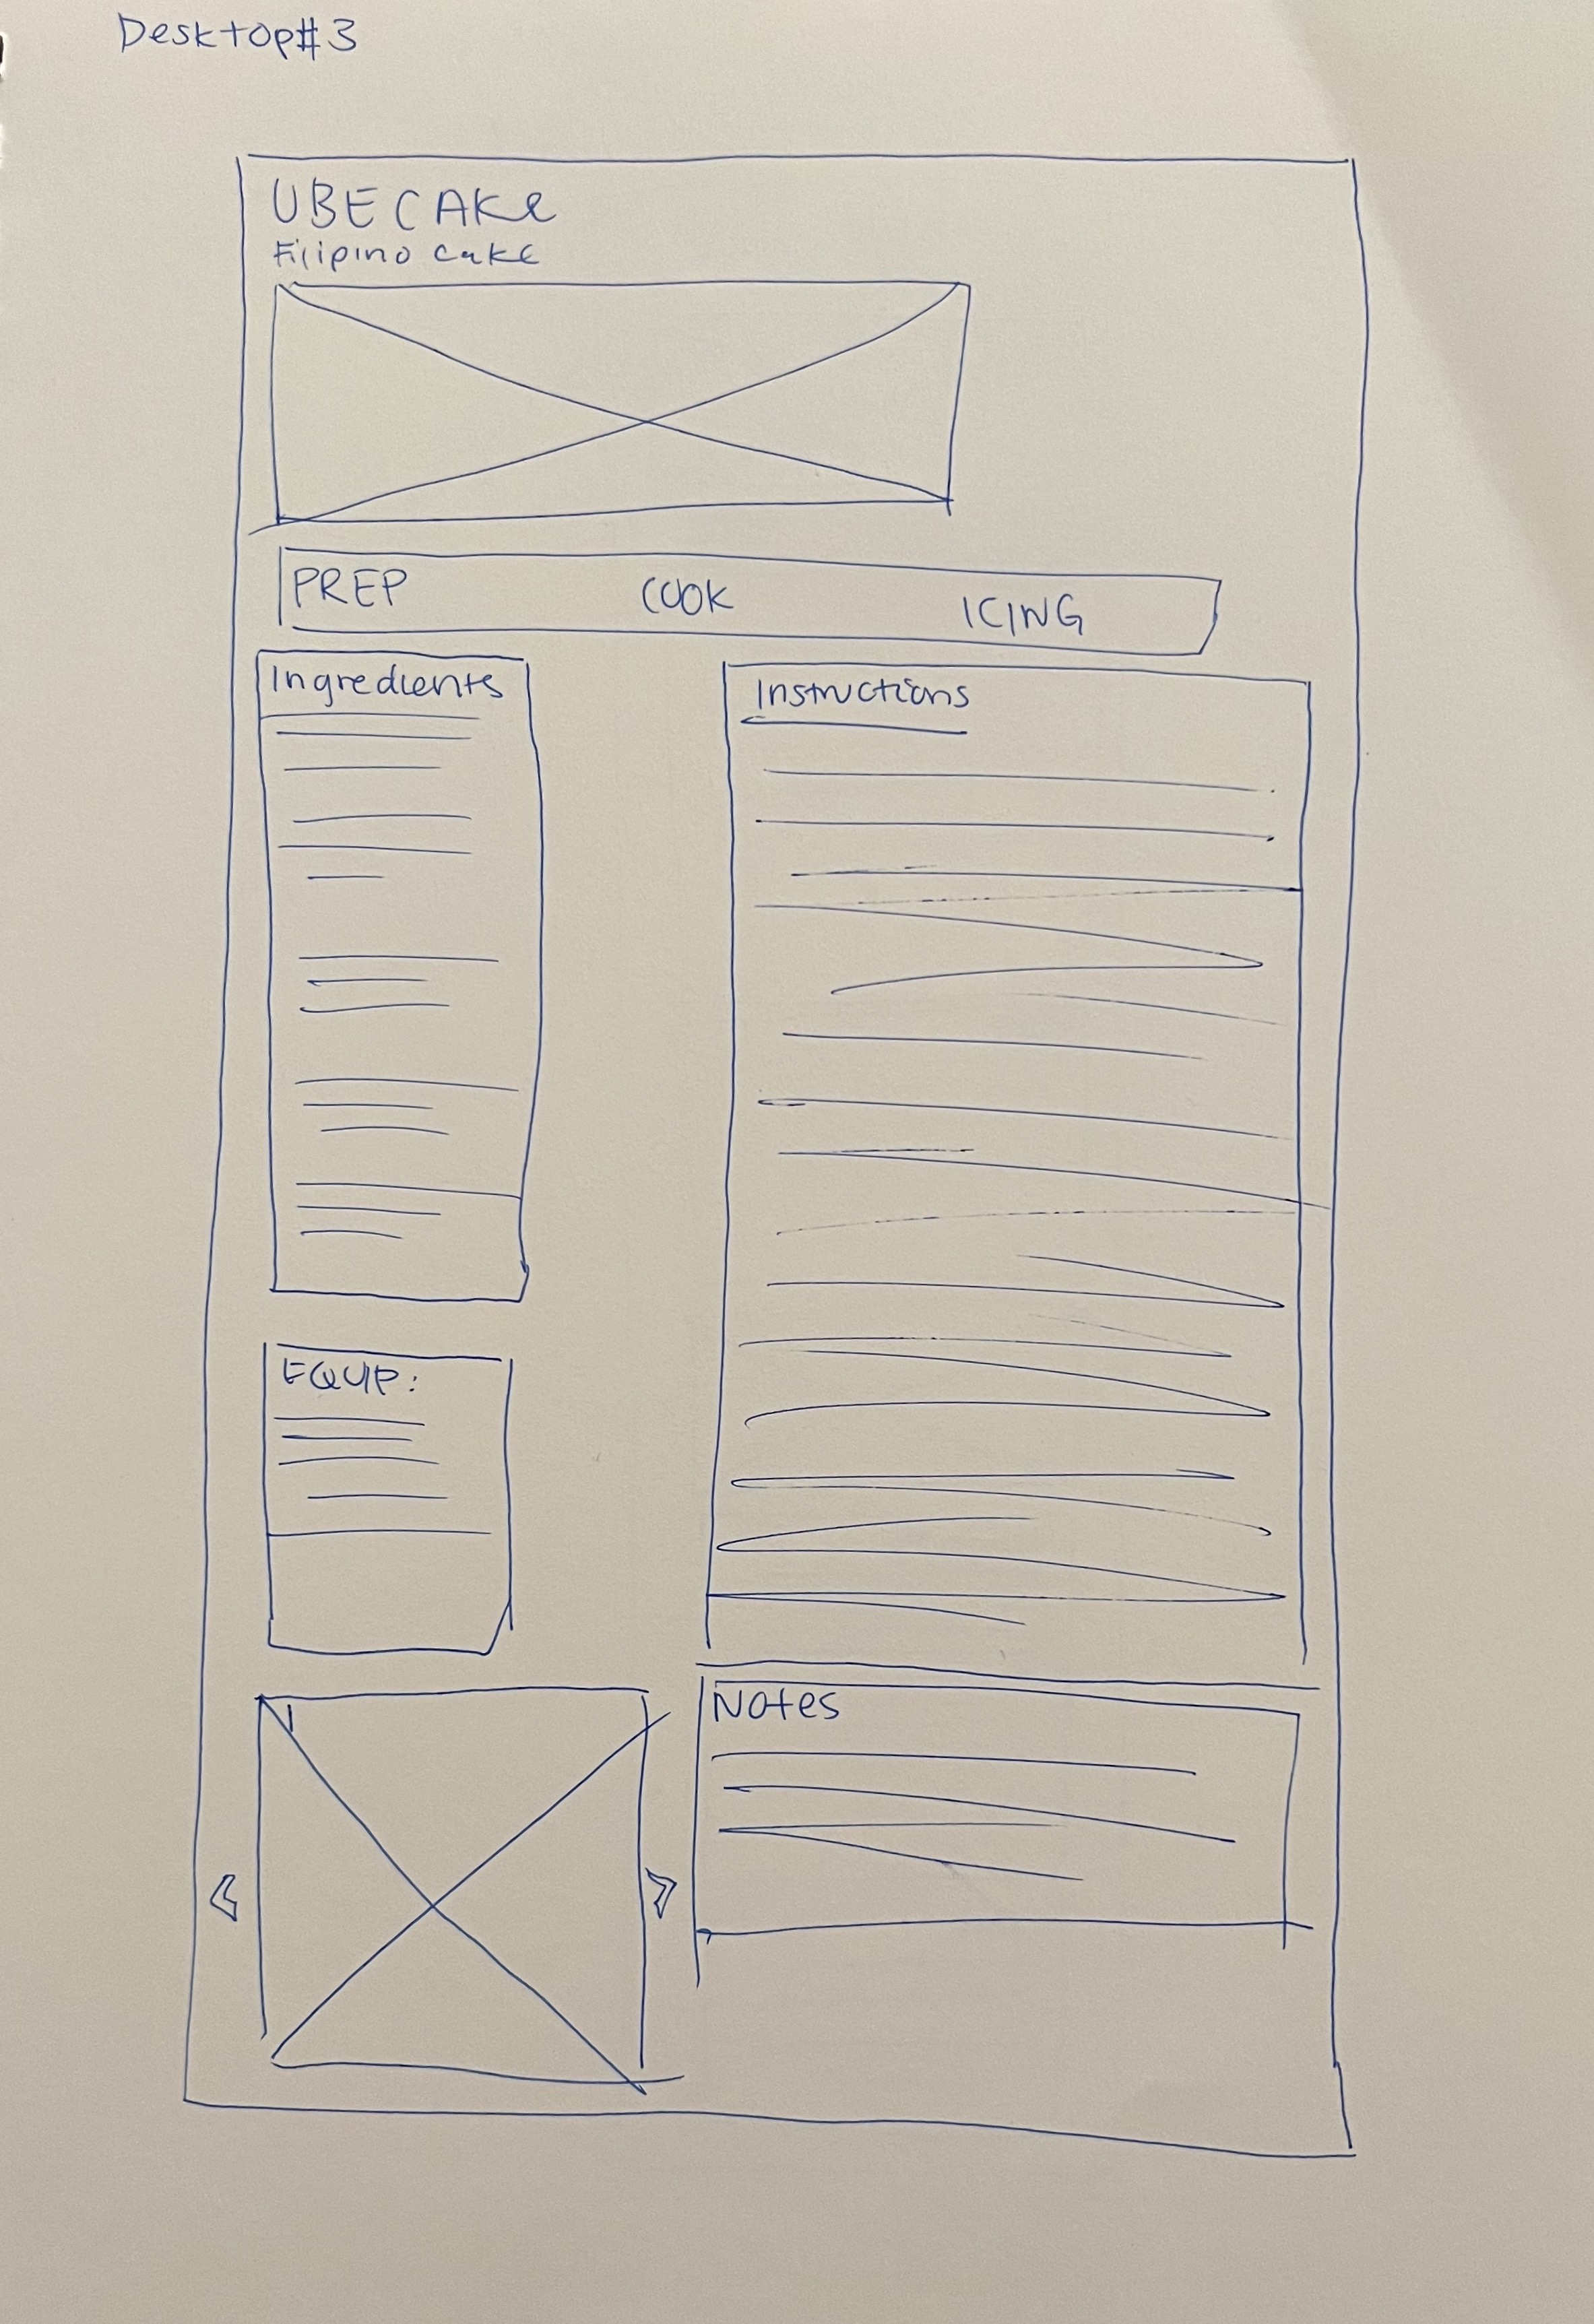 Desktop#3
UBE CAKe
Filipino cake
PREP COOK ICING
Ingredients
Instructions
EQUIP:
Notes